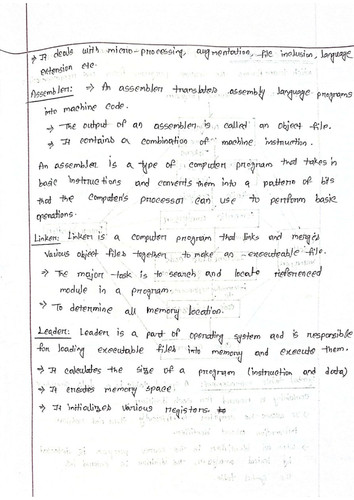 → It deals with micro-processing, augmentation, file inclusion, language
extension etc.
Assembler: → An assembler translates assembly language programs
into machine code.
→ The output of an assembler is called an object file.
→ It contains a combination of machine instruction.
An assembler is a type of computer program that takes in
basic instructions and converts them into a pattern of bits
that the computer's processor can use to perform basic
operations.
Linker: Linker is a computer program that links and merges
various object files together to make an executable file.
→ The major task is to search and locate referenced
module in a program.
→ To determine all memory location.
Loader: Loader is a part of operating system and is responsible
for loading executable files into memory and execute them.
→ It calculates the size of a program (instruction and data)
→ It creates memory space.
→ It initializes various registers to